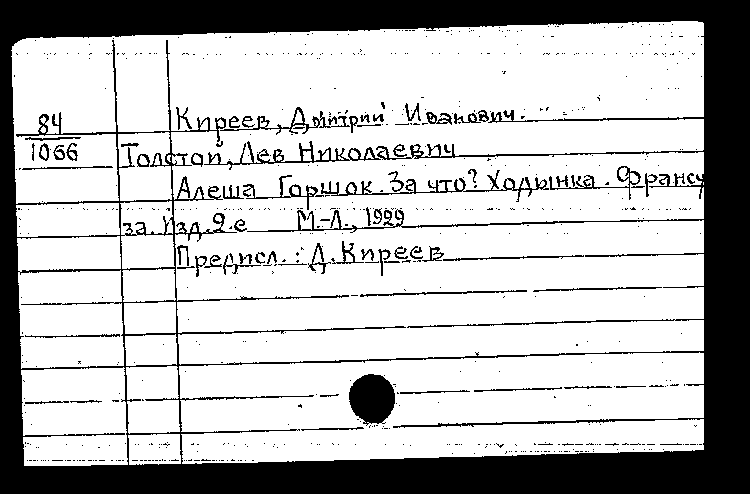 84
1066
Киреев, Дмитрий Иванович.
Толстой, Лев Николаевич
Алеша Горшок. За что? Ходынка. Франсу
за. Изд. 2-е М.-Л., 1929
Предисл.: Д. Киреев